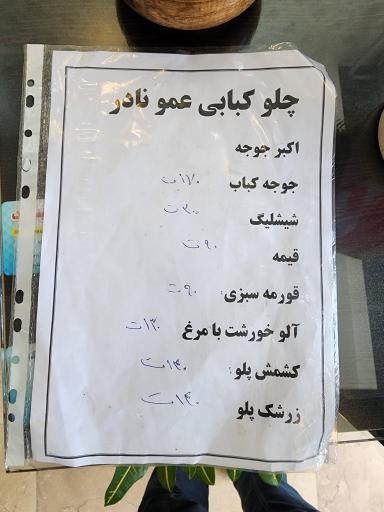 چلو کبابی عمو نادر
اکبر جوجه
جوجه کباب ۱۷۰ت
شیشلیگ ۳۰۰ت
قیمه ۹۰ت
قورمه سبزی: ۹۰ت
آلو خورشت با مرغ ۱۳۰ت
کشمش پلو: ۱۴۰ت
زرشک پلو ۱۴۰ت